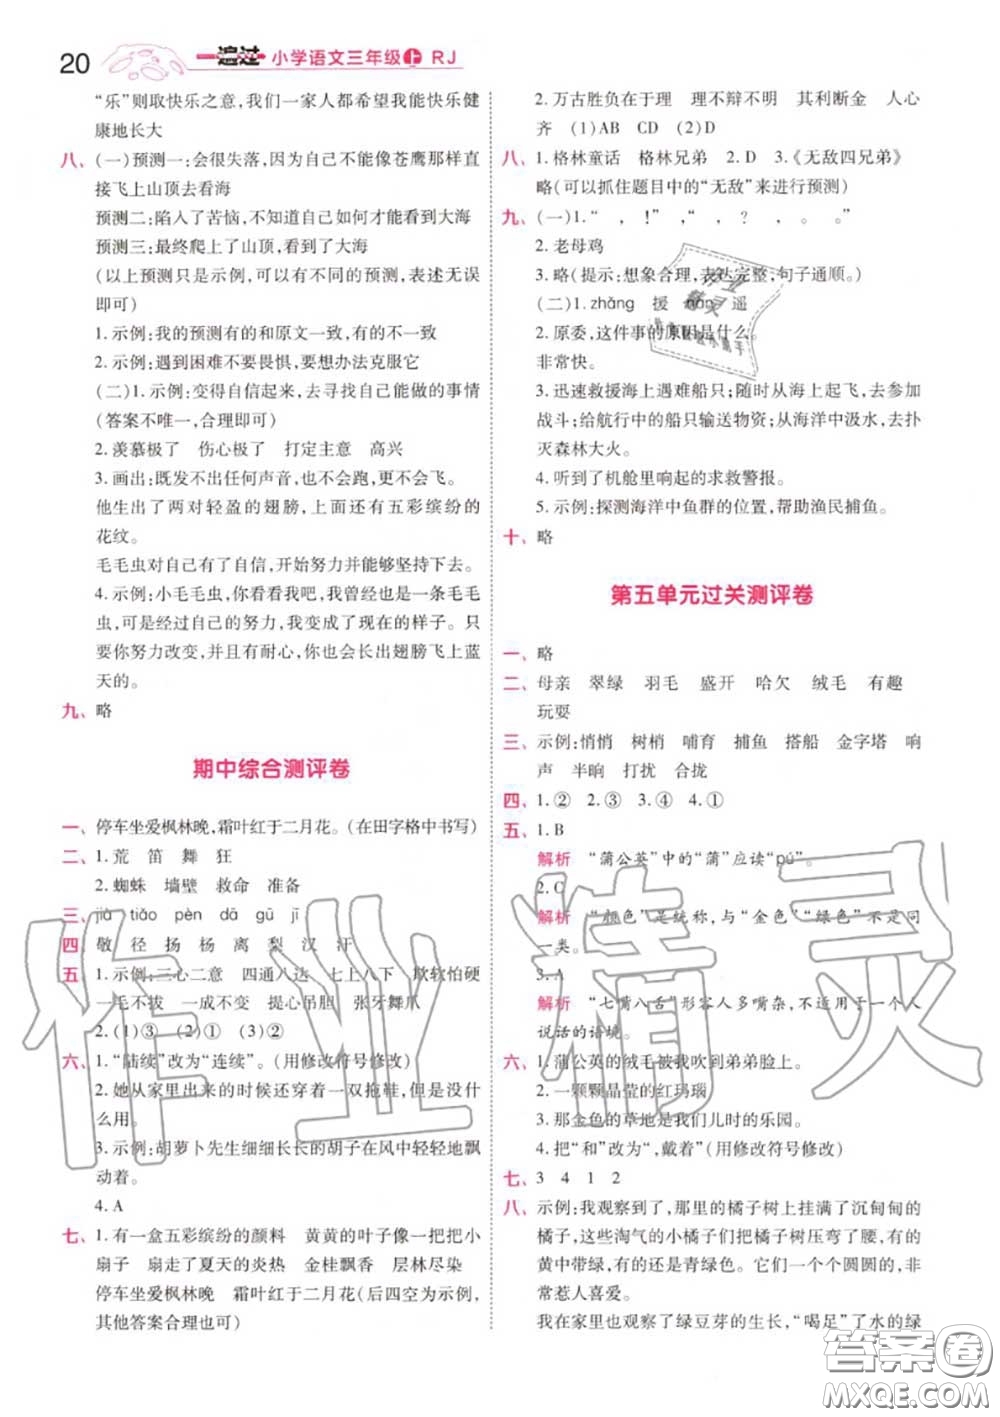 20 一遍过 小学语文三年级上 RJ
“乐”则取快乐之意,我们一家人都希望我能快乐健
康地长大
八、(一)预测一:会很失落,因为自己不能像苍鹰那样直
接飞上山顶去看海
预测二:陷入了苦恼,不知道自己如何才能看到大海
预测三:最终爬上了山顶,看到了大海
(以上预测只是示例,可以有不同的预测,表述无误
即可)
1.示例:我的预测有的和原文一致,有的不一致
2.示例:遇到困难不要畏惧,要想办法克服它
(二)1.示例:变得自信起来,去寻找自己能做的事情
(答案不唯一,合理即可)
2.羡慕极了 伤心极了 打定主意 高兴
3.画出:既发不出任何声音,也不会跑,更不会飞。
他生出了两对轻盈的翅膀,上面还有五彩缤纷的
花纹。
毛毛虫对自己有了自信,开始努力并能够坚持下去。
4.示例:小毛毛虫,你看看我吧,我曾经也是一条毛毛
虫,可是经过自己的努力,我变成了现在的样子。只
要你努力改变,并且有耐心,你也会长出翅膀飞上蓝
天的。
九、略
期中综合测评卷
一、停车坐爱枫林晚,霜叶红于二月花。(在田字格中书写)
二、1.荒 笛 舞 狂
2.蜘蛛 墙壁 救命 准备
三、jià tiǎo pèn dā gū jī
四、敬 径 扬 杨 离 梨 汉 汗
五、1.示例:三心二意 四通八达 七上八下 欺软怕硬
一毛不拔 一成不变 提心吊胆 张牙舞爪
2.(1)③ (2)① (3)②
六、1.“陆续”改为“连续”。(用修改符号修改)
2.她从家里出来的时候还穿着一双拖鞋,但是没什
么用。
3.示例:胡萝卜先生细细长长的胡子在风中轻轻地飘
动着。
4.A
七、1.有一盒五彩缤纷的颜料 黄黄的叶子像一把把小
扇子 扇走了夏天的炎热 金桂飘香 层林尽染
停车坐爱枫林晚 霜叶红于二月花(后四空为示例,
其他答案合理也可)
2.万古胜负在于理 理不辩不明 其利断金 人心
齐 (1)AB CD (2)D
八、1.格林童话 格林兄弟 2.D 3.《无敌四兄弟》
略(可以抓住题目中的“无敌”来进行预测)
九、(一)1.“ , !” ,“ , ? , 。 。”
2.老母鸡
3.略(提示:想象合理,表达完整,句子通顺。)
(二)1.zhǎng 援 nàn 遥
2.原委,这件事的原因是什么。
非常快。
3.迅速救援海上遇难船只;随时从海上起飞,去参加
战斗;给航行中的船只输送物资;从海洋中汲水,去扑
灭森林大火。
4.听到了机舱里响起的求救警报。
5.示例:探测海洋中鱼群的位置,帮助渔民捕鱼。
十、略
第五单元过关测评卷
一、略
二、母亲 翠绿 羽毛 盛开 哈欠 绒毛 有趣
玩耍
三、示例:悄悄 树梢 哺育 捕鱼 搭船 金字塔 响
声 半晌 打扰 合拢
四、1.② 2.③ 3.④ 4.①
五、1.B
解析 “蒲公英”中的“蒲”应读“pú”。
2.C
解析 “颜色”是统称,与“金色”“绿色”不是同
一类。
3.A
解析 “七嘴八舌”形容人多嘴杂,不适用于一个人
说话的语境。
六、1.蒲公英的绒毛被我吹到弟弟脸上。
2.一颗颗晶莹的红玛瑙
3.那金色的草地是我们儿时的乐园。
4.把“和”改为“,戴着”(用修改符号修改)
七、3 4 1 2
八、示例:我观察到了,那里的橘子树上挂满了沉甸甸的
橘子,这些淘气的小橘子们把橘子树压弯了腰,有的
黄中带绿,有的还是青绿色。它们一个个圆圆的,非
常惹人喜爱。
我在家里也观察了绿豆芽的生长,“喝足”了水的绿
作业精灵
答案圈
MXQE.COM